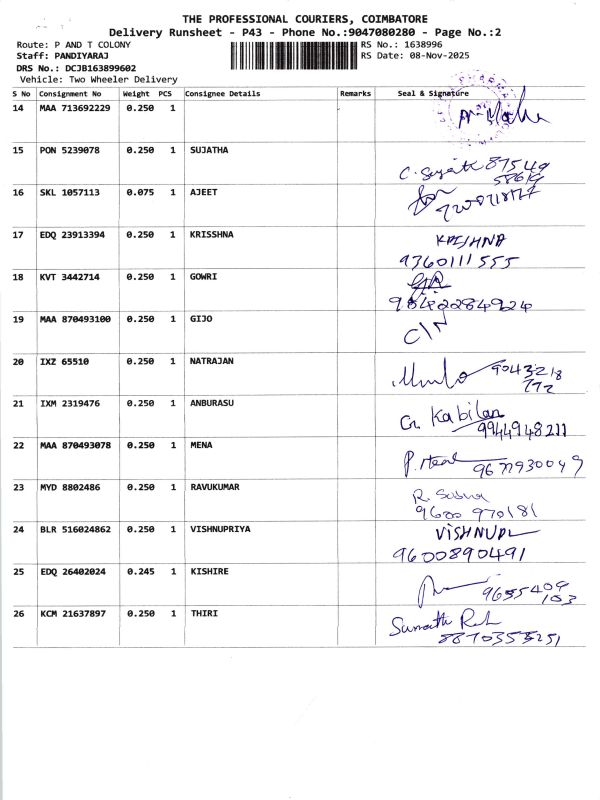 THE PROFESSIONAL COURIERS, COIMBATORE
Delivery Runsheet - P43 - Phone No.:9047080280 - Page No.:2
Route: P AND T COLONY RS No.: 1638996
Staff: PANDIYARAJ RS Date: 08-Nov-2025
DRS No.: DCJB163899602
Vehicle: Two Wheeler Delivery
S No Consignment No Weight PCS Consignee Details Remarks Seal & Signature
14 MAA 713692229 0.250 1
15 PON 5239078 0.250 1 SUJATHA
87549
58619
16 SKL 1057113 0.075 1 AJEET
17 EDQ 23913394 0.250 1 KRISSHNA
KRISHNA
9360111555
18 KVT 3442714 0.250 1 GOWRI
9842284924
19 MAA 870493100 0.250 1 GIJO
20 IXZ 65510 0.250 1 NATRAJAN
9043218
772
21 IXM 2319476 0.250 1 ANBURASU
G. Kabilan
9944948211
22 MAA 870493078 0.250 1 MENA
9677930049
23 MYD 8802486 0.250 1 RAVUKUMAR
9600 970181
24 BLR 516024862 0.250 1 VISHNUPRIYA
9600890491
25 EDQ 26402024 0.245 1 KISHIRE
9655409
103
26 KCM 21637897 0.250 1 THIRI
8870355251